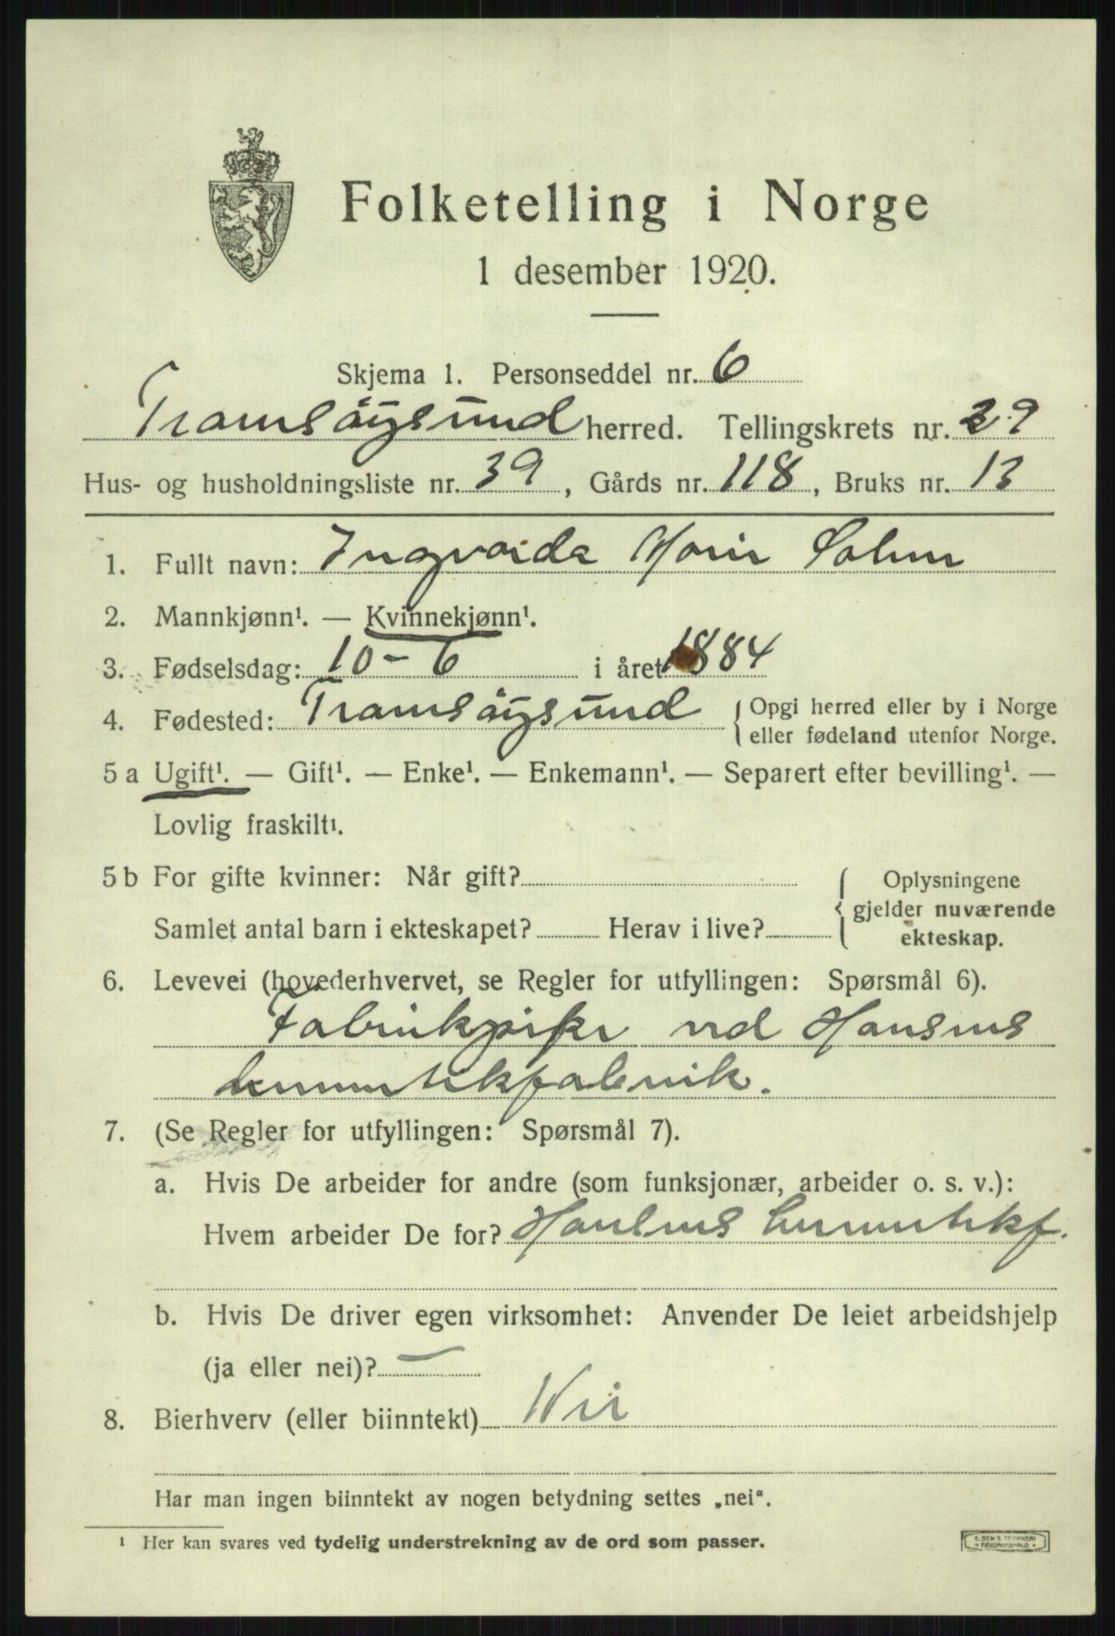 Folketelling i Norge
1 desember 1920.
Skjema 1. Personseddel nr. 6
Tromsöysund herred. Tellingskrets nr. 29
Hus- og husholdningsliste nr. 39, Gårds nr. 118, Bruks nr. 13
1. Fullt navn: Ingvarda Marie
2. Mannkjønn¹. — Kvinnekjønn¹.
3. Fødselsdag: 10-6 i året 1884
4. Fødested: Tromsöysund { Opgi herred eller by i Norge
eller fødeland utenfor Norge.
5 a Ugift¹. — Gift¹. — Enke¹. — Enkemann¹. — Separert efter bevilling¹. —
Lovlig fraskilt¹.
5 b For gifte kvinner: Når gift? { Oplysningene
gjelder nuværende
Samlet antal barn i ekteskapet? Herav i live?
ekteskap.
6. Levevei (hovederhvervet, se Regler for utfyllingen: Spørsmål 6).
Fabrikpike ved Hansens
hermetikfabrik.
7. (Se Regler for utfyllingen: Spørsmål 7).
a. Hvis De arbeider for andre (som funksjonær, arbeider o. s. v.):
Hvem arbeider De for? Hansens hermetikf.
b. Hvis De driver egen virksomhet: Anvender De leiet arbeidshjelp
(ja eller nei)? —
8. Bierhverv (eller biinntekt) Nei
Har man ingen biinntekt av nogen betydning settes „nei“.
¹ Her kan svares ved tydelig understrekning av de ord som passer.